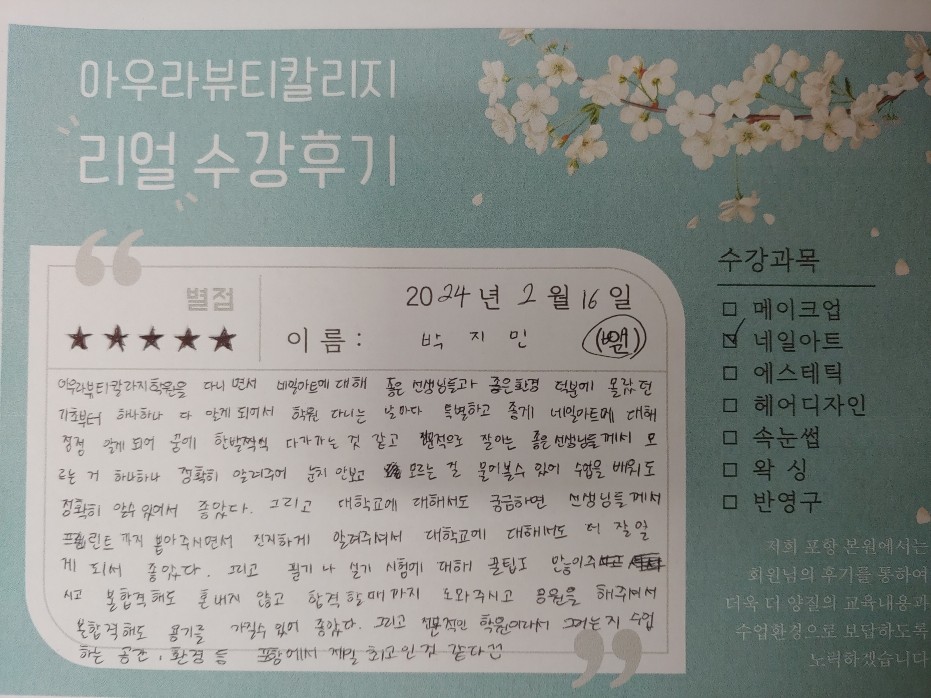 아우라뷰티칼리지
리얼 수강후기
별점
2024년 2월 16일
★★★★★
이름 : 박지민
수강과목
□ 메이크업
☑ 네일아트
□ 에스테틱
□ 헤어디자인
□ 속눈썹
□ 왁싱
□ 반영구
아우라뷰티칼라지학원을 다니면서 네일아트에 대해 좋은 선생님들과 좋은환경 덕분에 몰랐던
기초부터 하나하나 다 알게 되어서 학원 다니는 날마다 특별하고 좋게 네일아트에 대해
점점 알게 되어 꿈에 한발짝씩 다가가는 것 같고 전문적으로 잘아는 좋은선생님들께서 모
르는 거 하나하나 정확히 알려주어 눈치 안보고 모르는 걸 물어볼수 있어 수업을 배워도
정확히 알수있어서 좋았다. 그리고 대학교에 대해서도 궁금하면 선생님들께서
프린트까지 뽑아주시면서 진지하게 알려주셔서 대학교에 대해서도 더 잘알
게 되서 좋았다. 그리고 필기나 실기 시험에 대해 꿀팁도 많이주
시고 불합격해도 혼내지 않고 합격할때까지 도와주시고 응원을 해주셔서
불합격해도 용기를 가질수있어 좋았다. 그리고 전문적인 학원이라서 그러는지 수업
하는 공간, 환경 등 포항에서 제일 최고인것 같다
저희 포항 본원에서는
회원님의 후기를 통하여
더욱 더 양질의 교육내용과
수업환경으로 보답하도록
노력하겠습니다